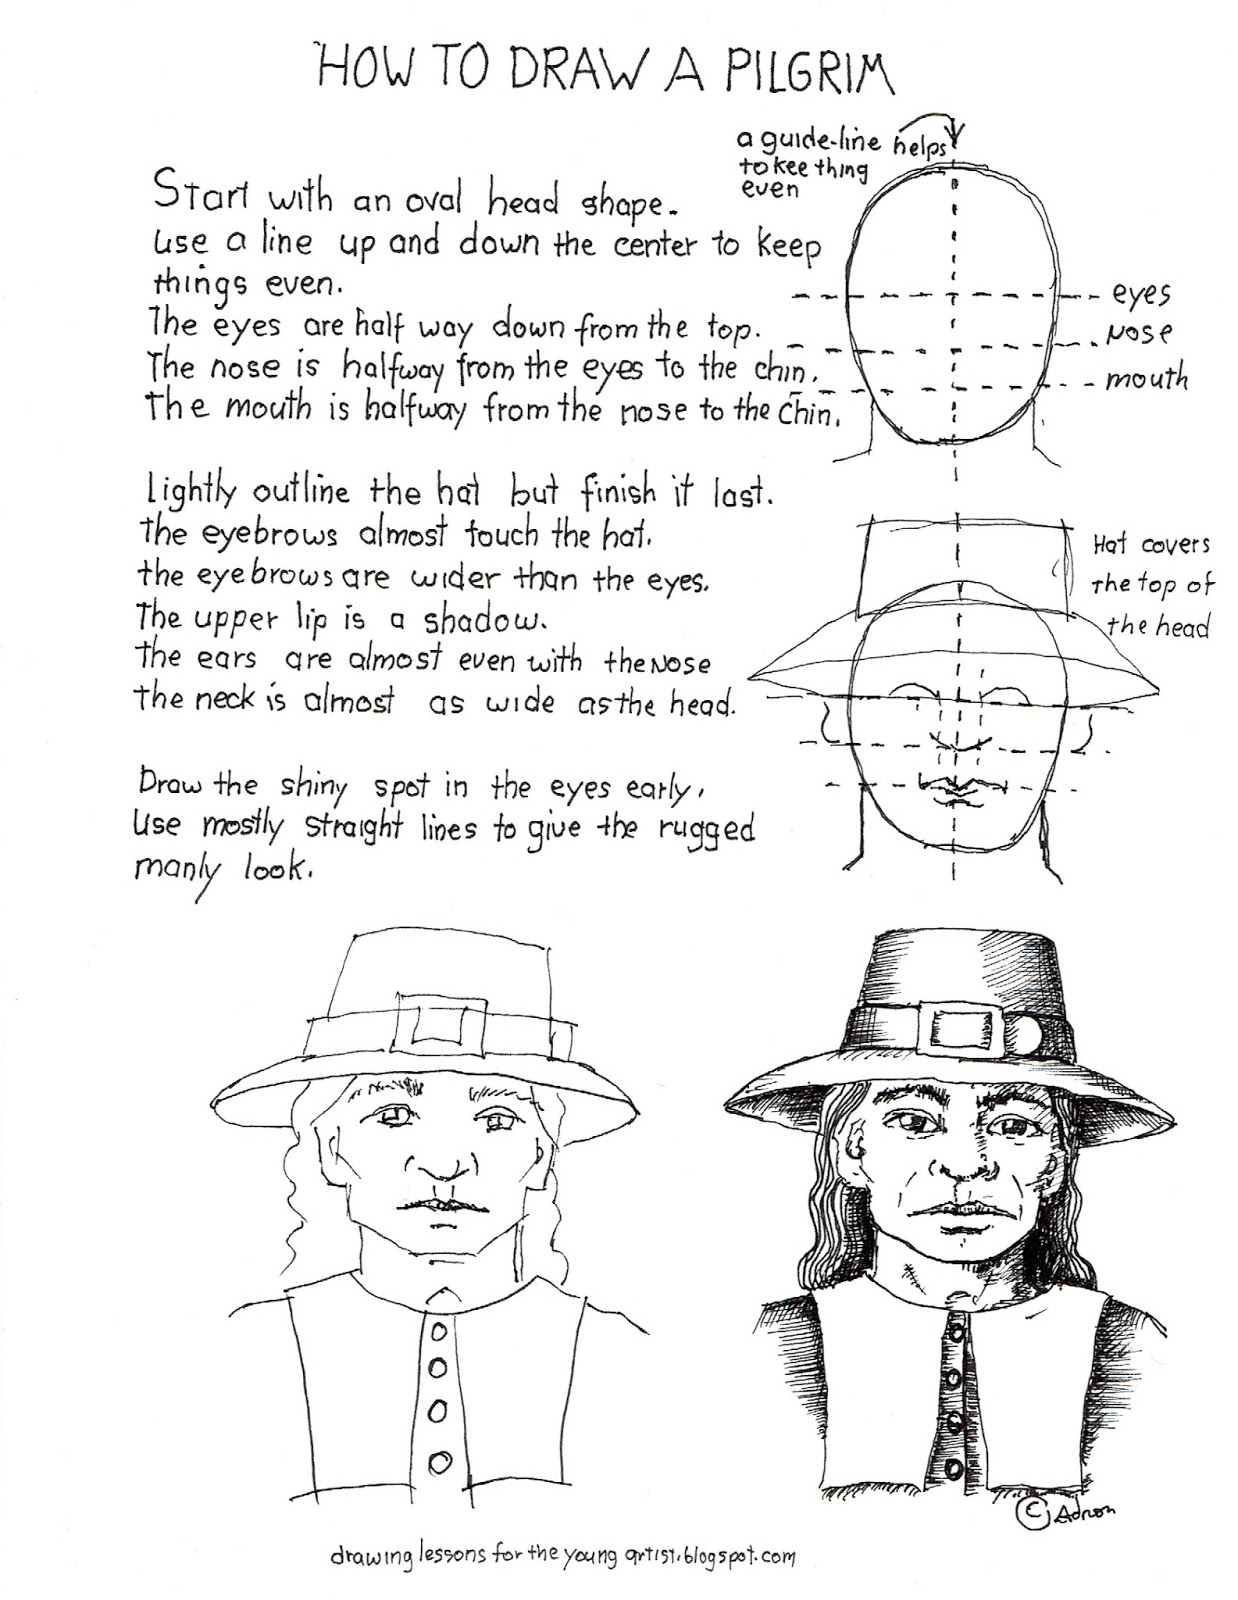 HOW TO DRAW A PILGRIM
a guide-line helps
to kee thing
even
Start with an oval head shape.
Use a line up and down the center to keep
things even.
The eyes are half way down from the top.
The nose is halfway from the eyes to the chin.
The mouth is halfway from the nose to the chin.
eyes
Nose
mouth
Lightly outline the hat but finish it last.
The eyebrows almost touch the hat.
the eyebrows are wider than the eyes.
The upper lip is a shadow.
the ears are almost even with the Nose
the neck is almost as wide as the head.
Hat covers
the top of
the head
Draw the shiny spot in the eyes early,
Use mostly straight lines to give the rugged
manly look.
© Adron
drawing lessons for the young artist.blogspot.com